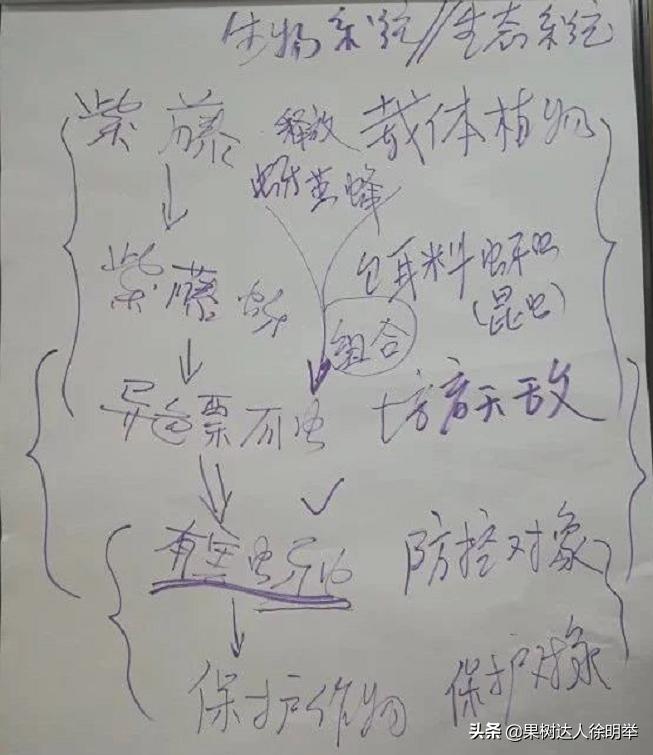 生物系统//生态系统
紫藤 释放 载体植物
蚜茧蜂
紫藤蚜 饵料蚜虫
(昆虫)
组合
异色瓢虫 培育天敌
有害蚜虫 防控对象
保护作物 保护对象
头条 @果树达人徐明举